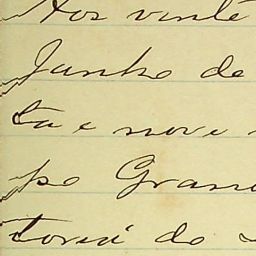 Aos vinte
Junho de
ta e nove
po Gran
toriá do